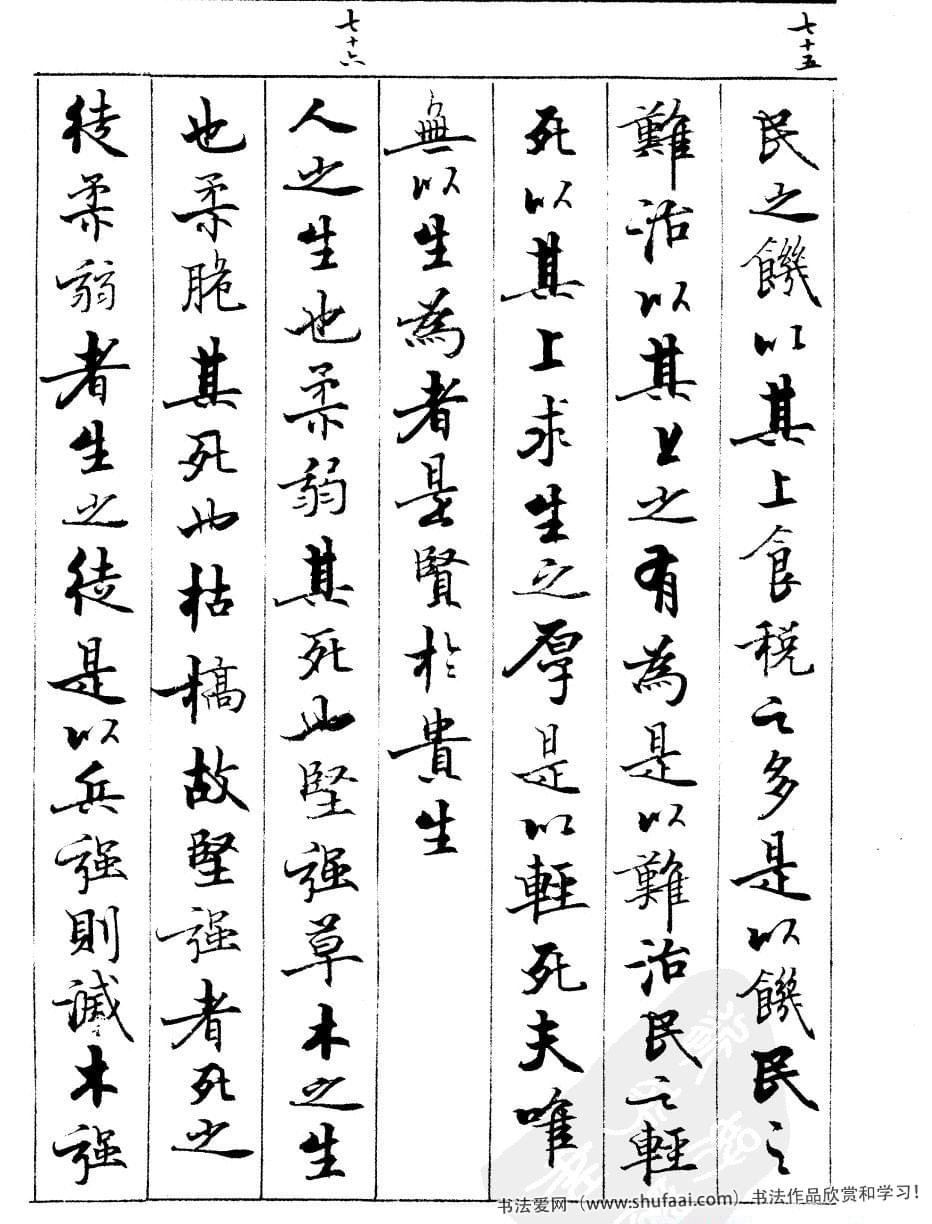 七十五
民之饑以其上食税之多是以饑民之
難治以其上之有為是以難治民之輕
死以其上求生之厚是以輕死夫唯
無以生為者是賢於貴生
七十六
人之生也柔弱其死也堅强草木之生
也柔脆其死也枯槁故堅强者死之
徒柔弱者生之徒是以兵强則滅木强
书法爱网（www.shufaai.com）书法作品欣赏和学习！